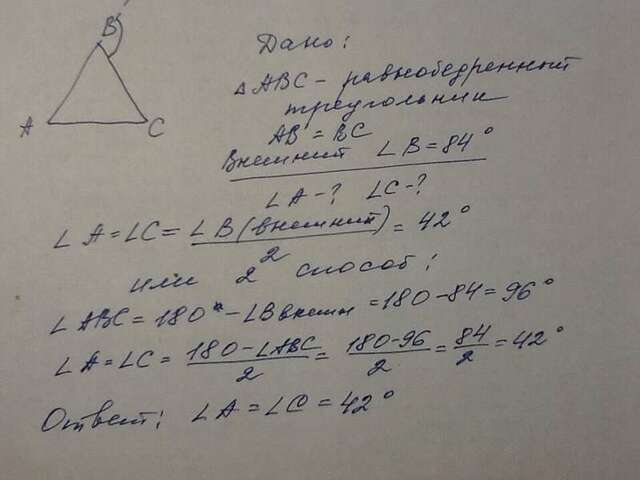 B
A
C
Дано:
△ABC - равнобедренный
треугольник
AB = BC
Внешний ∠B = 84°
∠A-? ∠C-?
∠A = ∠C = ∠B (внешний) / 2 = 42°
или 2 способ:
∠ABC = 180° - ∠B внешн = 180 - 84 = 96°
∠A = ∠C = 180 - ∠ABC / 2 = 180 - 96 / 2 = 84 / 2 = 42°
Ответ: ∠A = ∠C = 42°